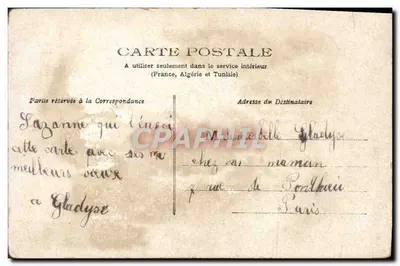 CARTE POSTALE
A utiliser seulement dans le service intérieur
(France, Algérie et Tunisie)
Partie réservée à la Correspondance
Adresse du Destinataire
Suzanne qui t'envoi
cette carte avec ses
meilleurs vœux
a Gladyse
Mademoiselle Gladyse
chez sa maman
7 rue de Ponthieu
Paris
CPAPHIL.COM